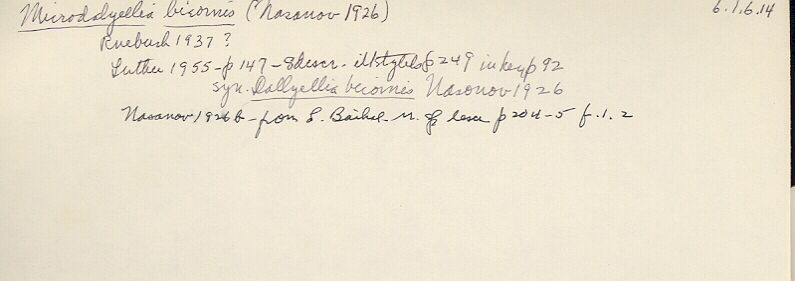 Microdalyellia bicornis (Nasonov 1926) 6.1.6.14
Ruebush 1937 ?
Luther 1955 - p 147 - 8 descr. ill stylets p 249 in key p 92
syn. Dallyellia bicornis Nasonov 1926
Nasonov 1926 b - from L. Baikal - n. p 204 - 5 f. 1. 2